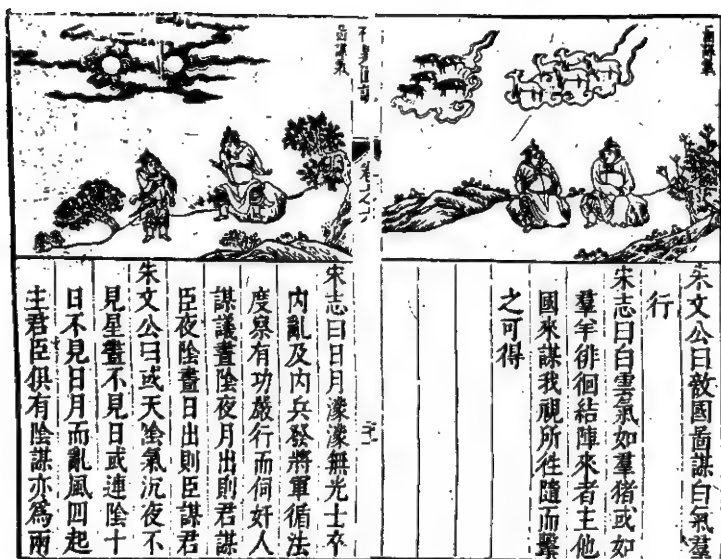 圖謀氣
朱文公曰敵國啚謀白氣羣
行
宋志曰白雲氣如羣猪或如
羣羊徘徊結陣來者主他
國來謀我視所往隨而擊
之可得
卷之
啚謀氣
宋志曰日月濛濛無光士卒
內亂及內兵發將軍循法
度察有功嚴行而伺奸人
謀議晝陰夜月出則君謀
臣夜陰晝日出則臣謀君
朱文公曰或天陰氣沉夜不
見星晝不見日或連陰十
日不見日月而亂風四起
主君臣俱有陰謀亦爲兩